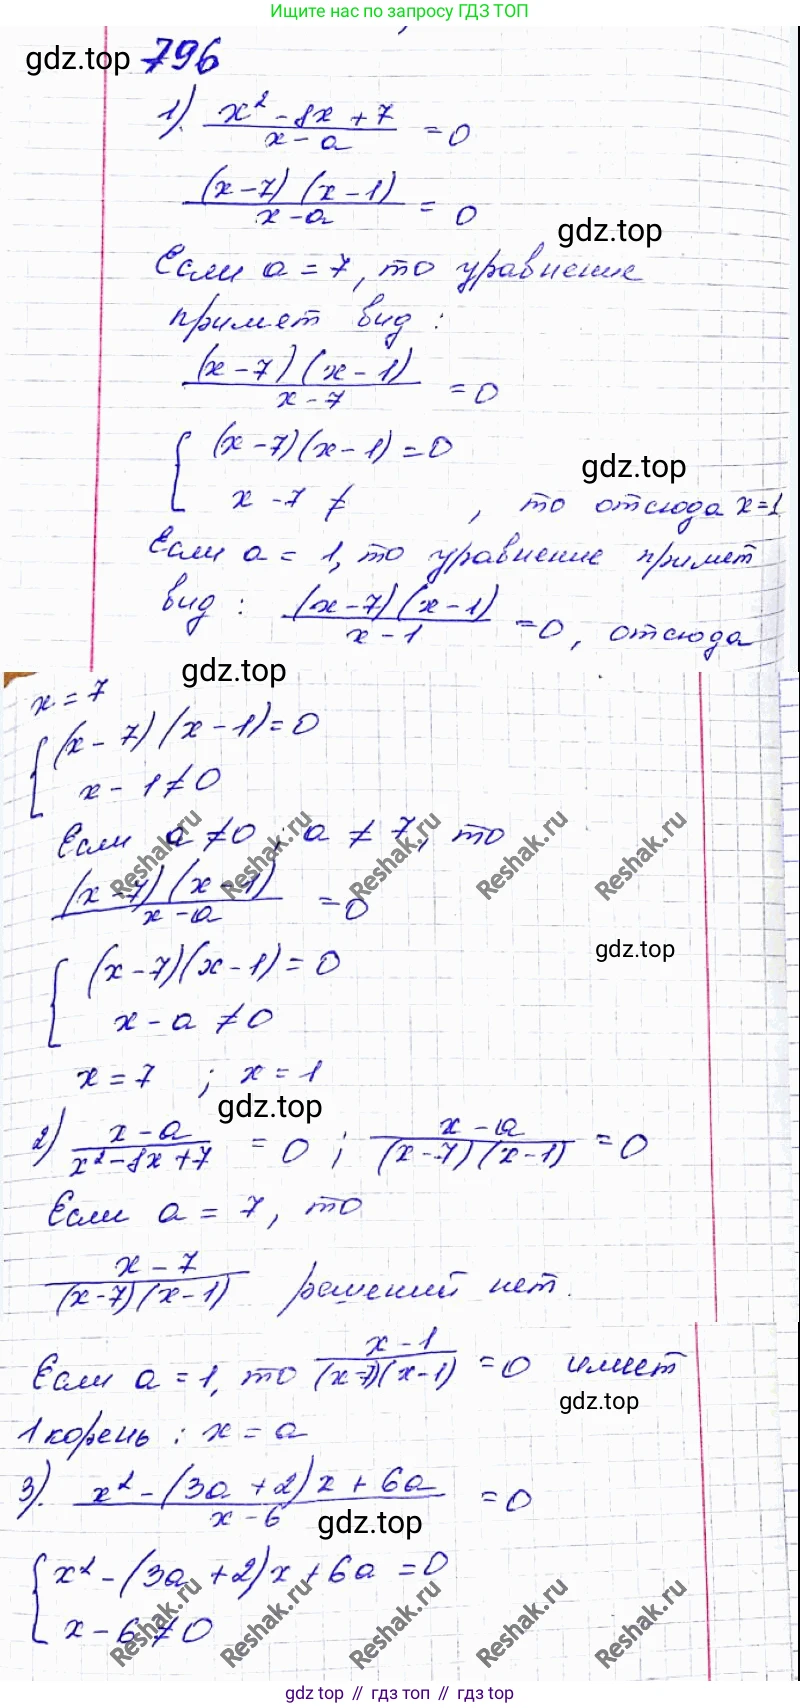 Ищите нас по запросу ГДЗ ТОП
gdz.top 796
1). (x² - 8x + 7)/(x - a) = 0
((x-7)(x-1))/(x-a) = 0
gdz.top
Если a = 7, то уравнение
примет вид :
((x-7)(x-1))/(x-7) = 0
{ (x-7)(x-1) = 0
gdz.top
x - 7 ≠ , то отсюда x=1
Если a = 1, то уравнение примет
вид : ((x-7)(x-1))/(x-1) = 0, отсюда
gdz.top
x = 7
{ (x-7)(x-1) = 0
x - 1 ≠ 0
Если a ≠ 0 ; a ≠ 7, то
Reshak.ru Reshak.ru Reshak.ru Reshak.ru
((x-7)(x-1))/(x-a) = 0
gdz.top
{ (x-7)(x-1) = 0
x - a ≠ 0
x = 7 ; x = 1
gdz.top
2) (x-a)/(x²-8x+7) = 0 ; (x-a)/((x-7)(x-1)) = 0
Если a = 7, то
(x-7)/((x-7)(x-1)) решений нет.
Если a = 1, то (x-1)/((x-7)(x-1)) = 0 имеет
gdz.top
1 корень : x = a
3). (x² - (3a+2)x + 6a)/(x-6) = 0
gdz.top
{ x² - (3a+2)x + 6a = 0
x - 6 ≠ 0
Reshak.ru Reshak.ru Reshak.ru Reshak.ru
gdz top // гдз топ // gdz top